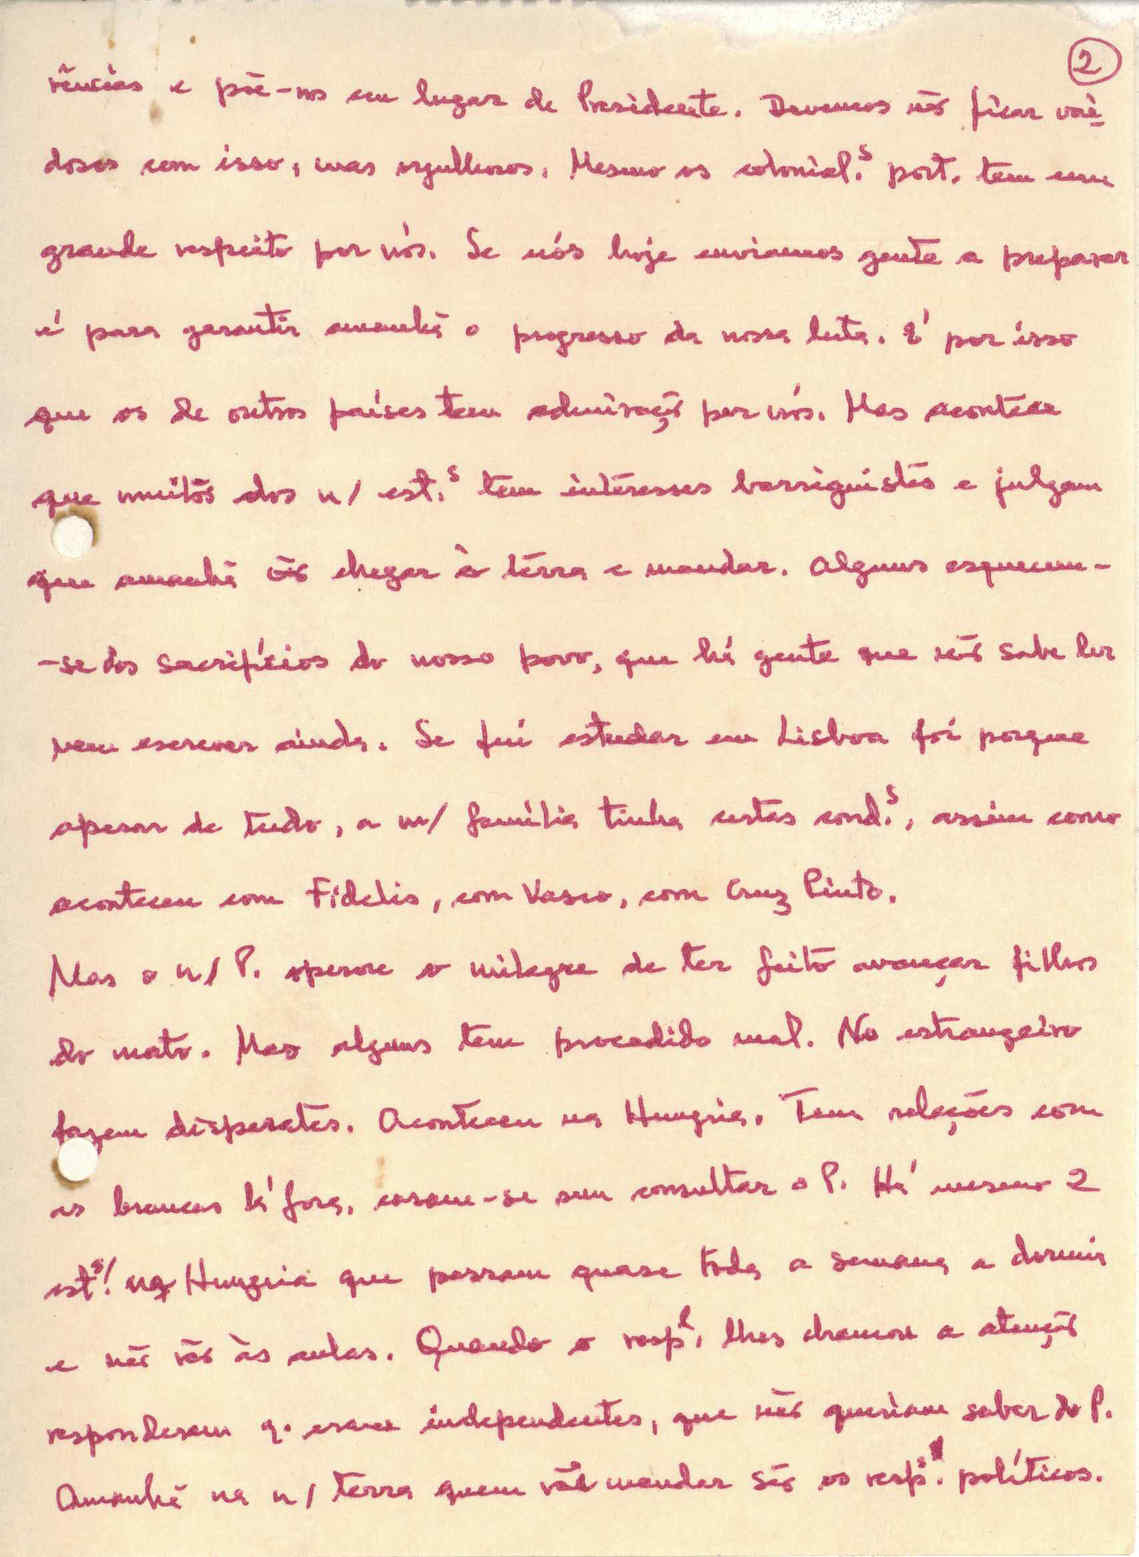 2
rências e põe-nos em lugar de Presidente. Devemos não ficar vai-
dosos com isso, mas orgulhosos. Mesmo os colonial.s port. tem um
grande respeito por nós. Se nós hoje enviamos gente a preparar
é para garantir amanhã o progresso da nossa luta. É por isso
que os de outros países tem admiração por nós. Mas acontece
que muitos dos n/ est.s tem intéresses barriguistas e julgam
que amanhã vão chegar à terra e mandar. Alguns esquecem-
-se dos sacrifícios do nosso povo, que há gente que não sabe ler
nem escrever ainda. Se fui estudar em Lisboa foi porque
apesar de tudo, a m/ família tinha certas cond.s, assim como
aconteceu com Fidelis, com Vasco, com Cruz Pinto.
Mas o n/ P. operou o milagre de ter feito avançar filhos
do mato. Mas alguns tem procedido mal. No estrangeiro
fazem disparates. Aconteceu na Hungria. Tem relações com
as brancas lá fora, casam-se sem consultar o P. Há mesmo 2
est.s! na Hungria que passam quase toda a semana a dormir
e não vão às aulas. Quando o resp.l lhes chamou a atenção
responderam q. eram independentes, que não queriam saber do P.
Amanhã na n/ terra quem vão mandar são os resp.s políticos.